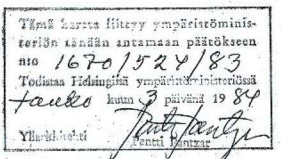 Tämä kartta liittyy ympäristöminis-
teriön tänään antamaan päätökseen
nro 1670/524/83
Todistaa Helsingissä ympäristöministeriössä
tammi kuun 3 päivänä 1984
Pentti Pantzar